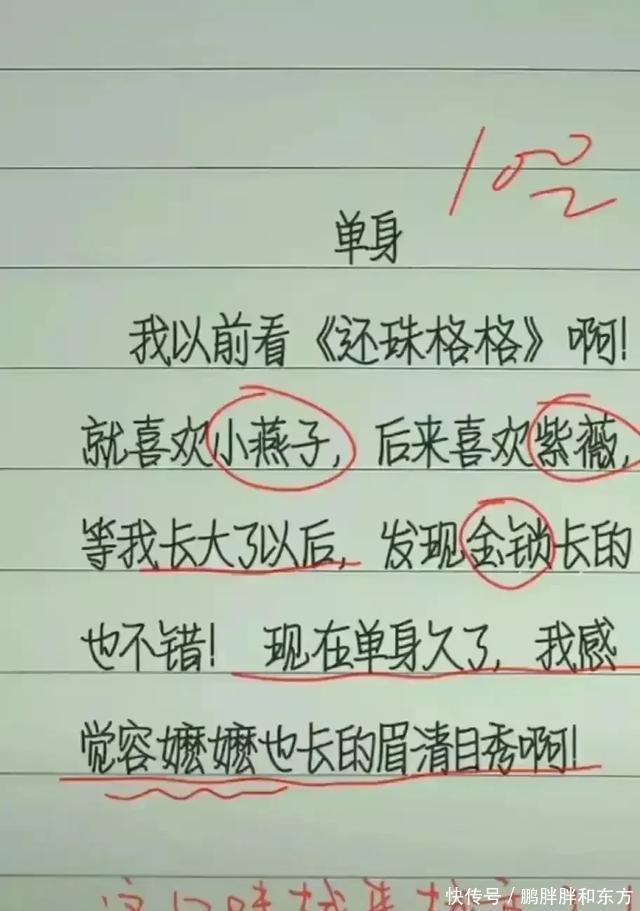 100
单身
我以前看《还珠格格》啊！
就喜欢小燕子，后来喜欢紫薇，
等我长大了以后，发现金锁长的
也不错！ 现在单身久了，我感
觉容嬷嬷也长的眉清目秀啊！
快传号／鹏胖胖和东方